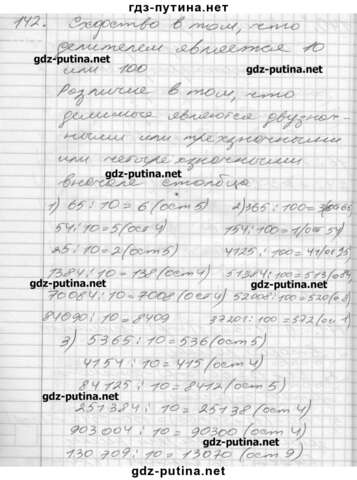 гдз-путина.нет
142. Сходство в том, что
делителем является 10
gdz-putina.net
или 100
gdz-putina.net
Различие в том, что
делимые являются двузнач-
ными или трехзначными
или четырехзначными
gdz-putina.net
вначале столбца
1) 65 : 10 = 6 (ост 5) 2) 365 : 100 = 3 (ост 65)
54 : 10 = 5 (ост 4) 154 : 100 = 1 (ост 54)
25 : 10 = 2 (ост 5) 4125 : 100 = 41 (ост 25)
1384 : 10 = 138 (ост 4) 51384 : 100 = 513 (ост 84
gdz-putina.net gdz-putina.net
70084 : 10 = 7008 (ост 4) 52008 : 100 = 520 (ост 8)
84090 : 10 = 8409 37201 : 100 = 372 (ост 1)
3) 5365 : 10 = 536 (ост 5)
4154 : 10 = 415 (ост 4)
84125 : 10 = 8412 (ост 5)
gdz-putina.net
251384 : 10 = 25138 (ост 4)
903004 : 10 = 90300 (ост 4)
gdz-putina.net
130709 : 10 = 13070 (ост 9)
gdz-putina.net